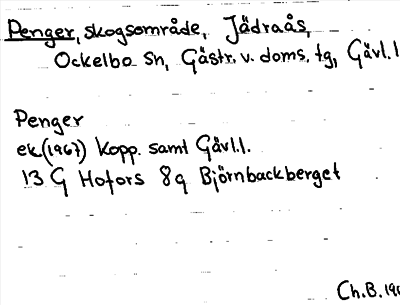 Penger, skogsområde, Jädraås,
Ockelbo Sn, Gästr. v. doms. tg, Gävl. l
Penger
ek. (1967) Kopp. samt Gävl. l.
13 G Hofors 8g Björnbackberget
Ch. B.